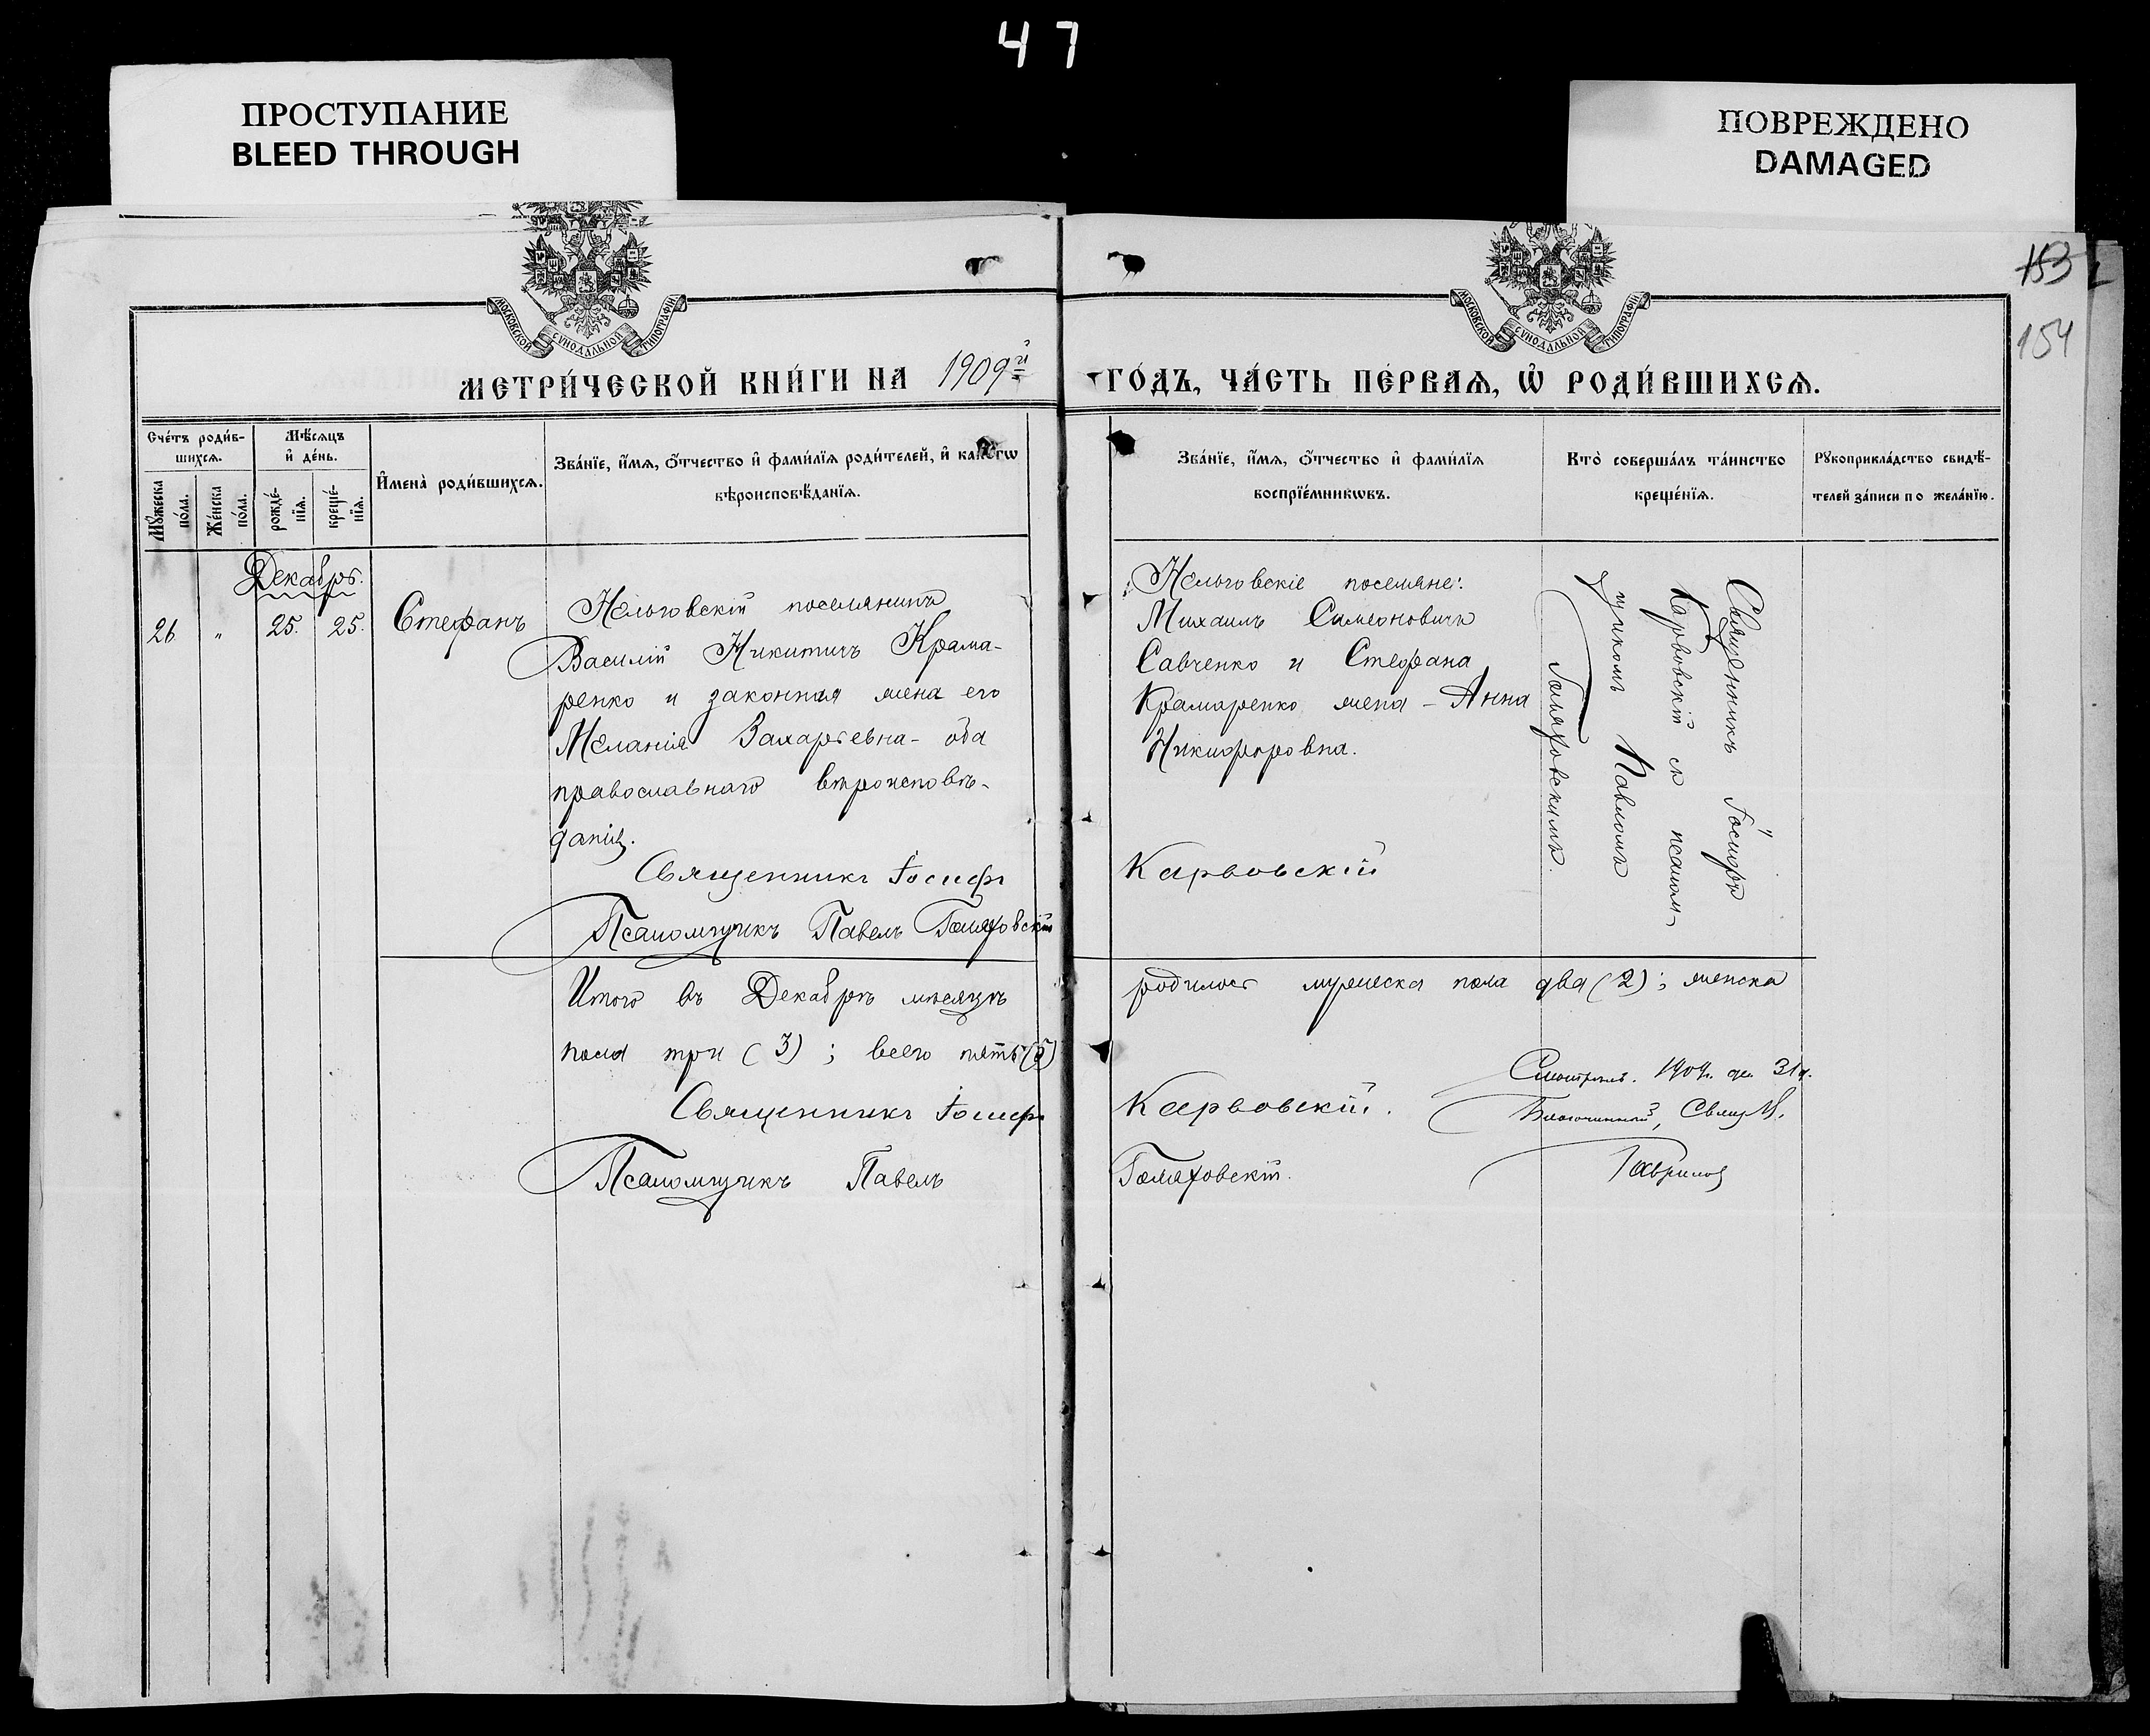 47
ПРОСТУПАНИЕ
BLEED THROUGH
ПОВРЕЖДЕНО
DAMAGED
153
154
МОСКОВСКОЙ СѴНОДАЛЬНОЙ ТИПОГРАФІИ
МОСКОВСКОЙ СѴНОДАЛЬНОЙ ТИПОГРАФІИ
МЕТРИ́ЧЕСКОЙ КНИ́ГИ НА 1909й
ГО́ДЪ, ЧА́СТЬ ПЕ́РВАѦ, Ѡ҆ РОДИ́ВШИХСѦ.
Сче́тъ роди́в-
шихсѧ.
Мꙋ́жеска по́ла.
Же́нска по́ла.
Мѣ́сѧцъ
и҆ де́нь.
рожде́-
нїѧ.
креще́-
нїѧ.
И҆мена̀ роди́вшихсѧ.
Зва́нїе, и҆́мѧ, ѻ҆́тчество и҆ фами́лїѧ роди́телей, и҆ како́гѡ
вѣроисповѣ́данїѧ.
Зва́нїе, и҆́мѧ, ѻ҆́тчество и҆ фами́лїѧ
воспрїе́мникѡвъ.
Кто̀ соверша́лъ та́инство
креще́нїѧ.
Рꙋкоприкла́дство свидѣ́-
телей за́писи по жела́нїю.
Декабрь.
26 " 25. 25. Стефанъ
поселянинъ
Василій Никитичъ Крама-
ренко и законная жена его
Меланія Захарьевна - оба
православнаго вѣроисповѣ-
данія.
Священникъ Іосифъ
Псаломщикъ Павелъ
поселяне:
Михаилъ Симеоновичъ
Савченко и Стефана
Крамаренко жена - Анна
Никифоровна.
Карвовскій
Священникъ Іосифъ
Карвовскій съ псалом-
щикомъ Павломъ
Итого въ Декабрѣ мѣсяцѣ
родилось мужеска пола два (2); женска
пола три (3); всего пять (5)
Священникъ Іосифъ
Карвовскій.
Псаломщикъ Павелъ
Смотрѣлъ. 1909. де. 31 д.
Благочинный, Свящ.
Гавриловъ